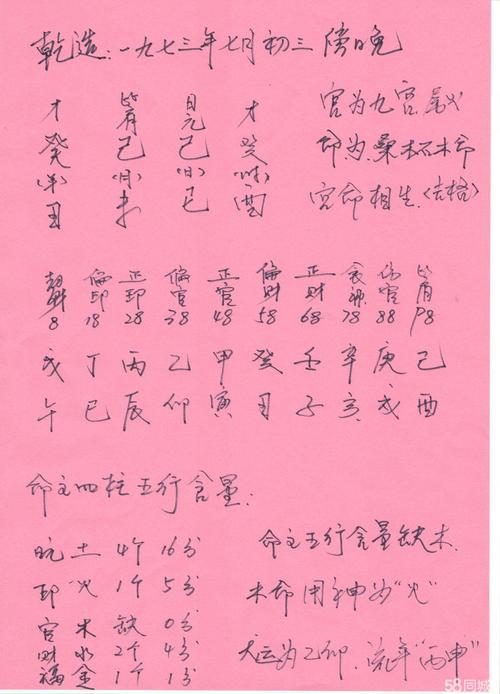 乾造:一九七三年七月初三 傍晚
才 比肩 日元 才
癸 己 己 癸
(年) (月) (日) (时)
丑 未 巳 酉
宫为九宫,离火
命为桑柘木命
宫命相生(吉格)
劫财 偏印 正印 偏官 正官 偏财 正财 食神 伤官 比肩
8 18 28 38 48 58 68 78 88 98
戊 丁 丙 乙 甲 癸 壬 辛 庚 己
午 巳 辰 卯 寅 丑 子 亥 戌 酉
命主四柱五行含量:
土 4个 16分
印 火 1个 5分
官 木 缺 0分
财 水 2个 4分
福 金 1个 1分
命主五行含量缺木.
木命用神为"火"
大运为乙卯.流年"丙申"
58同城